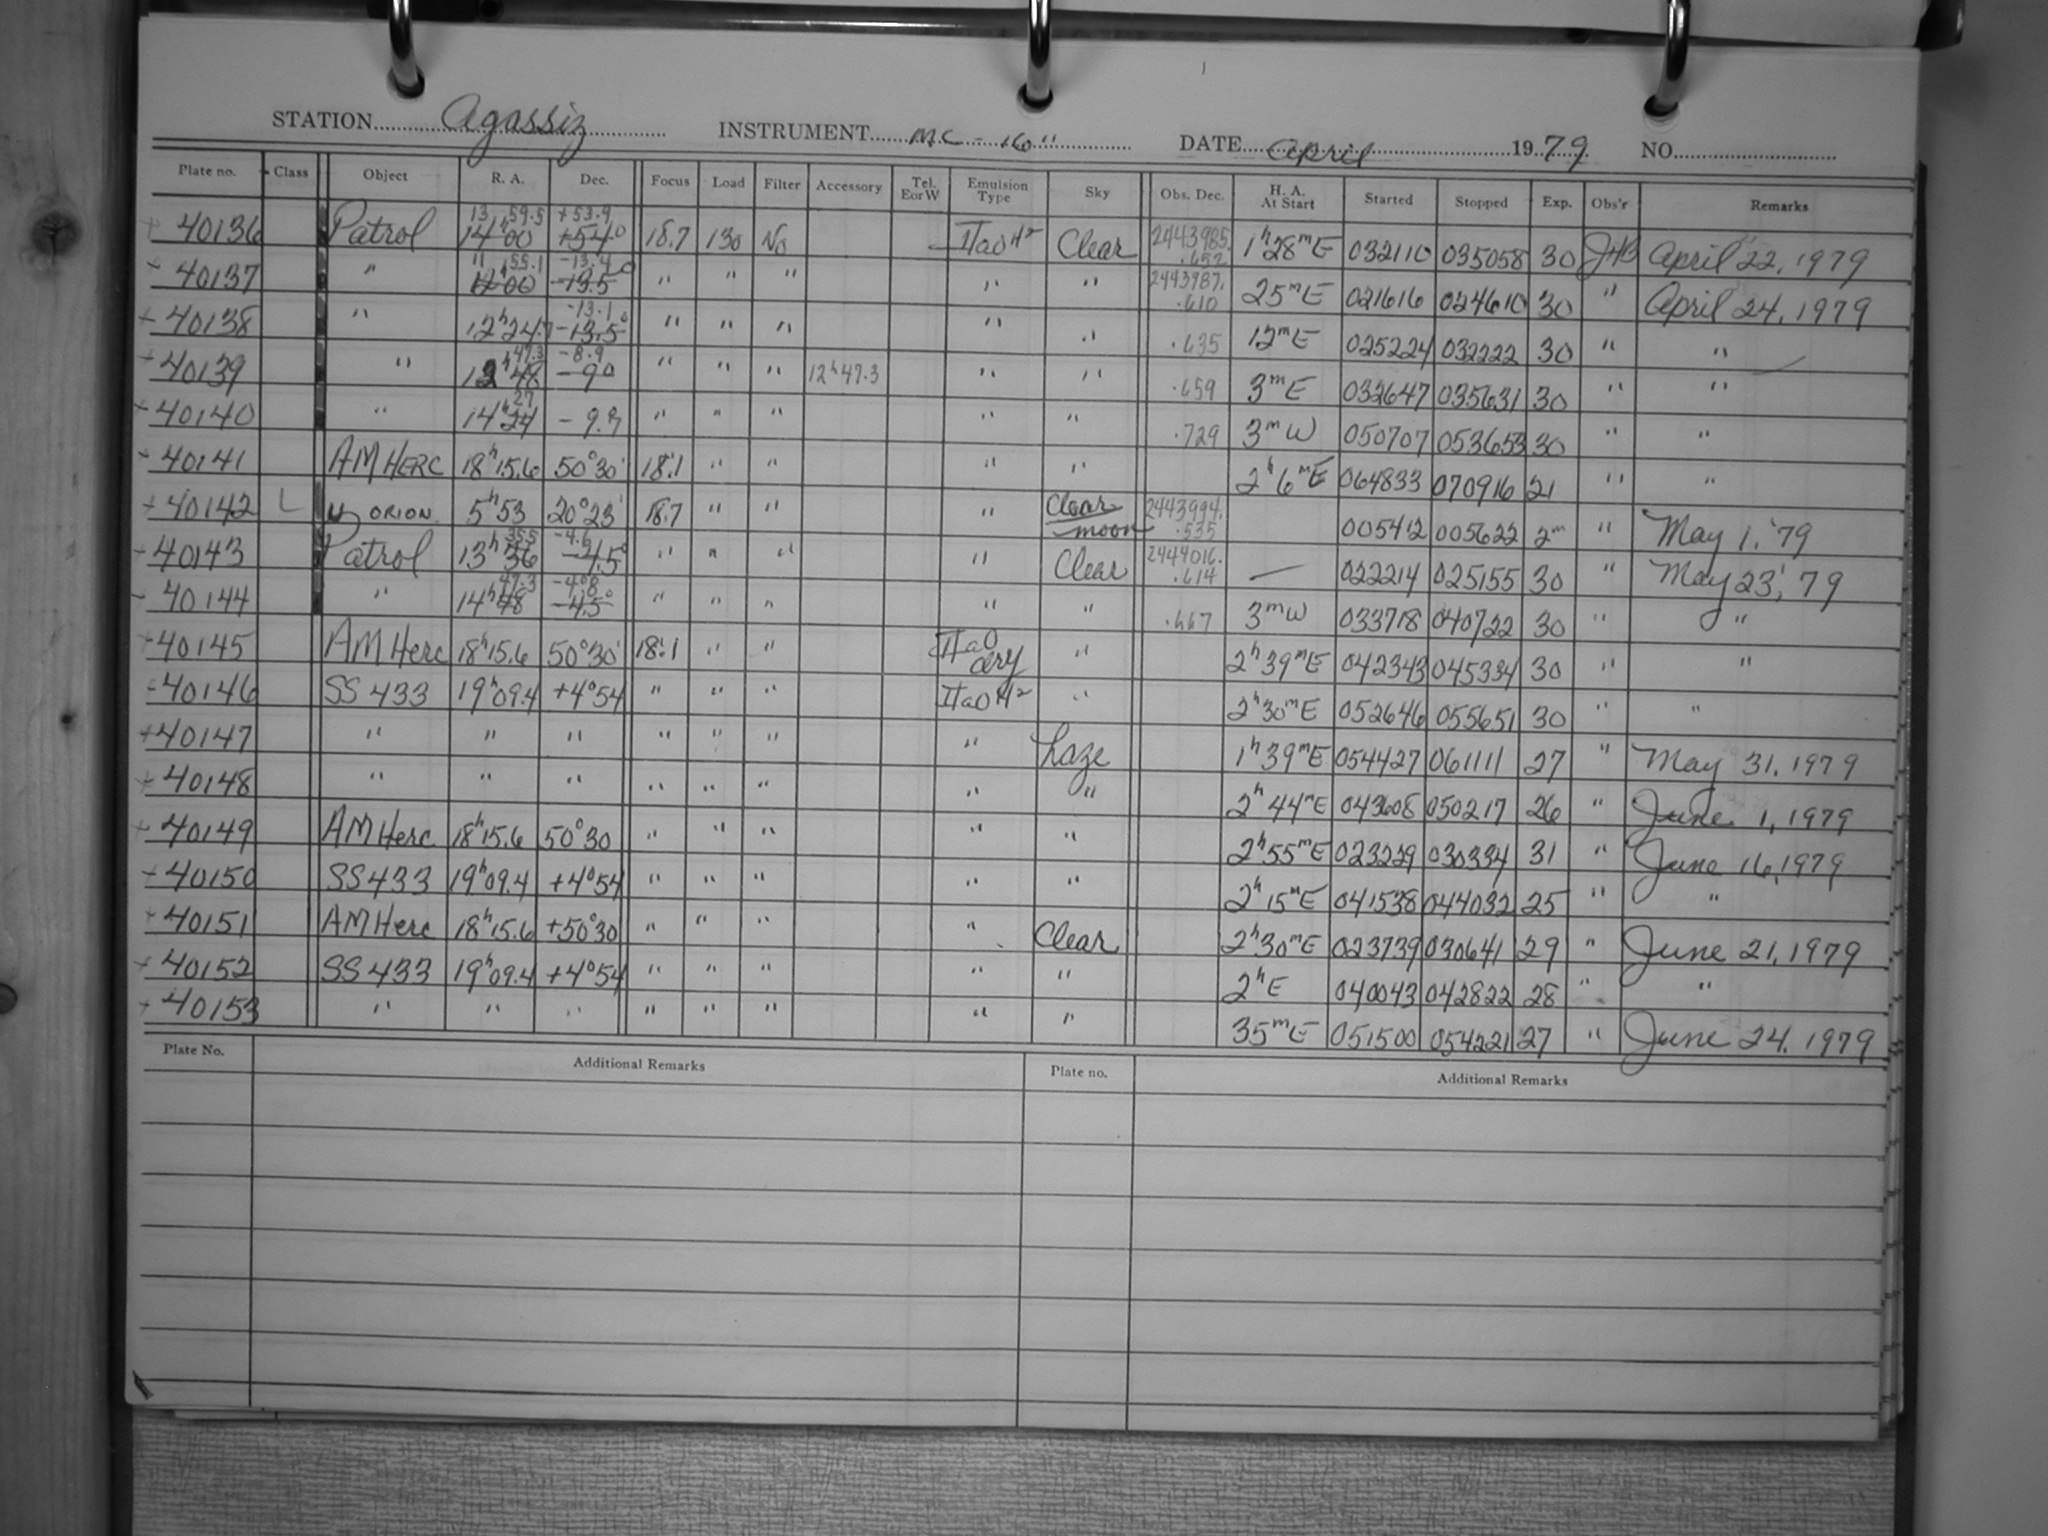 STATION Agassiz INSTRUMENT MC - 16" DATE April 1979 NO.
Plate no. Class Object R. A. Dec. Focus Load Filter Accessory Tel. E or W Emulsion Type Sky Obs. Dec. H. A. At Start Started Stopped Exp. Obs'r Remarks
13 59.5 +53.9
+ 40136 Patrol 14h00 +54° 18.7 130 No IIaO H2 Clear 2443985.652 1h28mE 032110 035058 30 JHB April 22, 1979
11 55.1 -13.4
- 40137 " 12 00 -13.5° " " " " " 2443987.610 25mE 021616 024610 30 " April 24, 1979
-13.1
+ 40138 " 12h24 -13.5° " " " " " .635 12mE 025224 032222 30 " "
47.3 -8.9
+ 40139 " 12h48 -9° " " " 12h47.3 " " .659 3mE 032647 035631 30 " "
27
- 40140 " 14h24 -9.9 " " " " " .729 3mW 050707 053653 30 " "
- 40141 AM HERC 18h15.6 50°30' 18.1 " " " " 2h6mE 064833 070916 21 " "
+ 40142 L U ORION 5h53 20°23' 18.7 " " " Clear moon 2443994.535 005412 005622 2m " May 1, '79
35.5 -4.6
+ 40143 Patrol 13h36 -4.5° " " " " Clear 2444016.614 — 022214 025155 30 " May 23, '79
47.3 -4.8
- 40144 " 14h48 -4.5° " " " " " .667 3mW 033718 040722 30 " "
+ 40145 AM Herc 18h15.6 50°30' 18.1 " " IIaO dry " 2h39mE 042343 045334 30 " "
- 40146 SS 433 19h09.4 +4°54 " " " IIaO H2 " 2h30mE 052646 055651 30 " "
+ 40147 " " " " " " " haze 1h39mE 054427 061111 27 " May 31, 1979
+ 40148 " " " " " " " " 2h44mE 043608 050217 26 " June 1, 1979
+ 40149 AM Herc 18h15.6 50°30 " " " " " 2h55mE 023229 030334 31 " June 16, 1979
+ 40150 SS 433 19h09.4 +4°54 " " " " " 2h15mE 041538 044032 25 " "
+ 40151 AM Herc 18h15.6 +50°30 " " " " Clear 2h30mE 023739 030641 29 " June 21, 1979
+ 40152 SS 433 19h09.4 +4°54 " " " " " 2hE 040043 042822 28 " "
+ 40153 " " " " " " " " 35mE 051500 054221 27 " June 24, 1979
Plate No. Additional Remarks Plate no. Additional Remarks